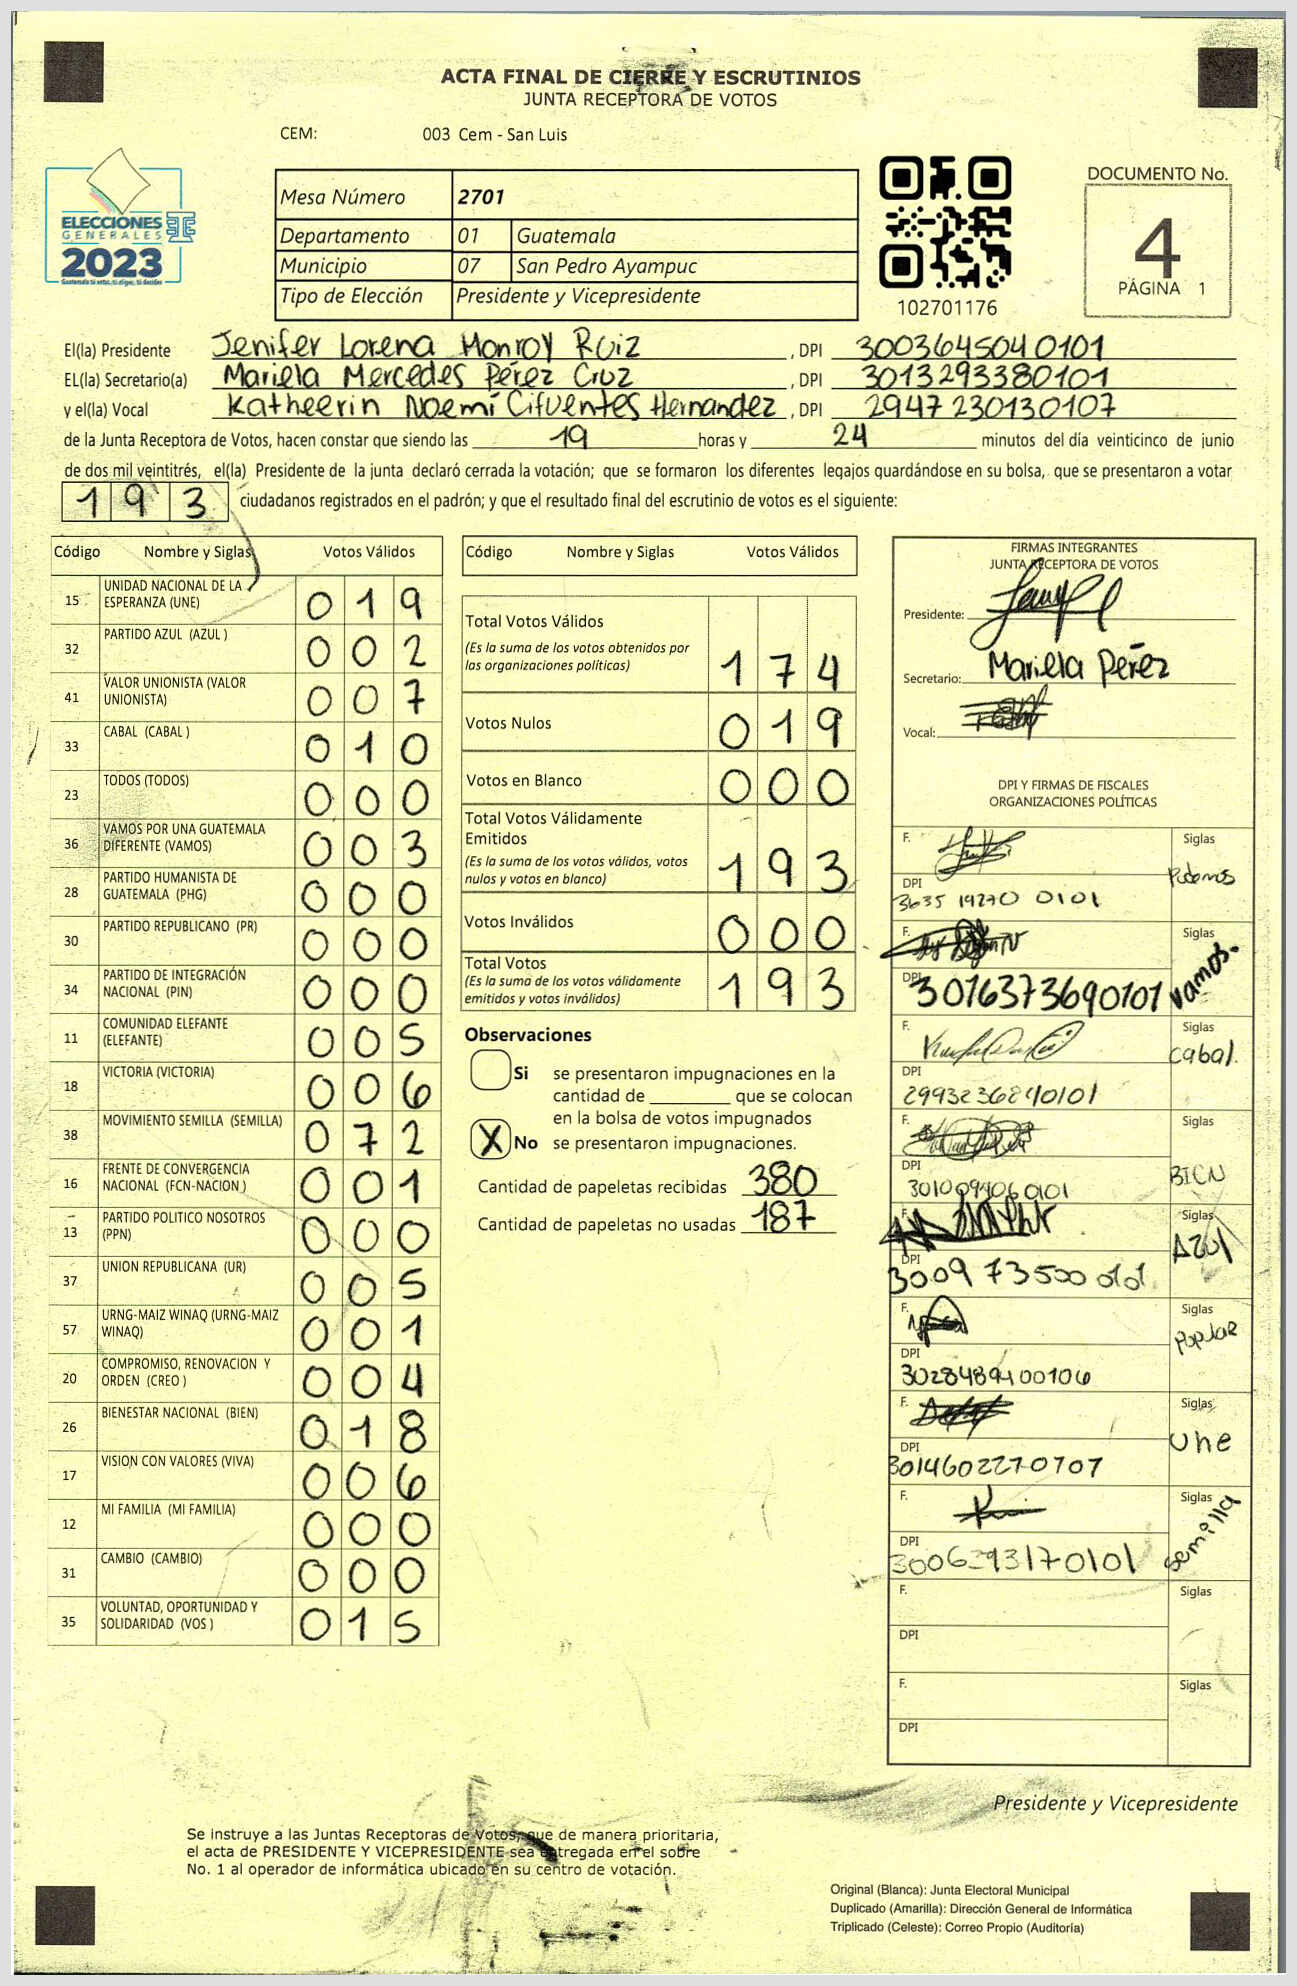 ACTA FINAL DE CIERRE Y ESCRUTINIOS
JUNTA RECEPTORA DE VOTOS
CEM: 003 Cem - San Luis
ELECCIONES
GENERALES
2023
Guatemala tú votas, tú eliges, tú decides
TSE
Mesa Número 2701
Departamento 01 Guatemala
Municipio 07 San Pedro Ayampuc
Tipo de Elección Presidente y Vicepresidente
102701176
DOCUMENTO No.
4
PÁGINA 1
El(la) Presidente Jenifer Lorena Monroy Ruiz , DPI 3003645040101
EL(la) Secretario(a) Mariela Mercedes Pérez Cruz , DPI 3013293380101
y el(la) Vocal Katheerin Noemí Cifuentes Hernandez , DPI 2947230130107
de la Junta Receptora de Votos, hacen constar que siendo las 19 horas y 24 minutos del día veinticinco de junio
de dos mil veintitrés, el(la) Presidente de la junta declaró cerrada la votación; que se formaron los diferentes legajos guardándose en su bolsa, que se presentaron a votar
193 ciudadanos registrados en el padrón; y que el resultado final del escrutinio de votos es el siguiente:
Código Nombre y Siglas Votos Válidos
15 UNIDAD NACIONAL DE LA ESPERANZA (UNE) 019
32 PARTIDO AZUL (AZUL ) 002
41 VALOR UNIONISTA (VALOR UNIONISTA) 007
33 CABAL (CABAL ) 010
23 TODOS (TODOS) 000
36 VAMOS POR UNA GUATEMALA DIFERENTE (VAMOS) 003
28 PARTIDO HUMANISTA DE GUATEMALA (PHG) 000
30 PARTIDO REPUBLICANO (PR) 000
34 PARTIDO DE INTEGRACIÓN NACIONAL (PIN) 000
11 COMUNIDAD ELEFANTE (ELEFANTE) 005
18 VICTORIA (VICTORIA) 006
38 MOVIMIENTO SEMILLA (SEMILLA) 072
16 FRENTE DE CONVERGENCIA NACIONAL (FCN-NACION ) 001
13 PARTIDO POLITICO NOSOTROS (PPN) 000
37 UNION REPUBLICANA (UR) 005
57 URNG-MAIZ WINAQ (URNG-MAIZ WINAQ) 001
20 COMPROMISO, RENOVACION Y ORDEN (CREO ) 004
26 BIENESTAR NACIONAL (BIEN) 018
17 VISION CON VALORES (VIVA) 006
12 MI FAMILIA (MI FAMILIA) 000
31 CAMBIO (CAMBIO) 000
35 VOLUNTAD, OPORTUNIDAD Y SOLIDARIDAD (VOS ) 015
Código Nombre y Siglas Votos Válidos
Total Votos Válidos
(Es la suma de los votos obtenidos por
las organizaciones políticas) 174
Votos Nulos 019
Votos en Blanco 000
Total Votos Válidamente
Emitidos
(Es la suma de los votos válidos, votos
nulos y votos en blanco) 193
Votos Inválidos 000
Total Votos
(Es la suma de los votos válidamente
emitidos y votos inválidos) 193
Observaciones
Si se presentaron impugnaciones en la
cantidad de ________ que se colocan
en la bolsa de votos impugnados
X No se presentaron impugnaciones.
Cantidad de papeletas recibidas 380
Cantidad de papeletas no usadas 187
FIRMAS INTEGRANTES
JUNTA RECEPTORA DE VOTOS
Presidente:
Secretario: Mariela Pérez
Vocal:
DPI Y FIRMAS DE FISCALES
ORGANIZACIONES POLÍTICAS
F. Siglas Podemos
DPI 3635 19270 0101
F. Siglas Vamos.
DPI 3016373690101
F. Siglas Cabal.
DPI 2993236840101
F. Siglas BIEN
DPI 3010094060101
F. Siglas AZUL
DPI 3009 73500 0101
F. Siglas Popular
DPI 3028489400106
F. Siglas Une
DPI 3014602270707
F. Siglas Semilla
DPI 3006293170101
F. Siglas
DPI
F. Siglas
DPI
Presidente y Vicepresidente
Se instruye a las Juntas Receptoras de Votos, que de manera prioritaria,
el acta de PRESIDENTE Y VICEPRESIDENTE sea entregada en el sobre
No. 1 al operador de informática ubicado en su centro de votación.
Original (Blanca): Junta Electoral Municipal
Duplicado (Amarilla): Dirección General de Informática
Triplicado (Celeste): Correo Propio (Auditoría)